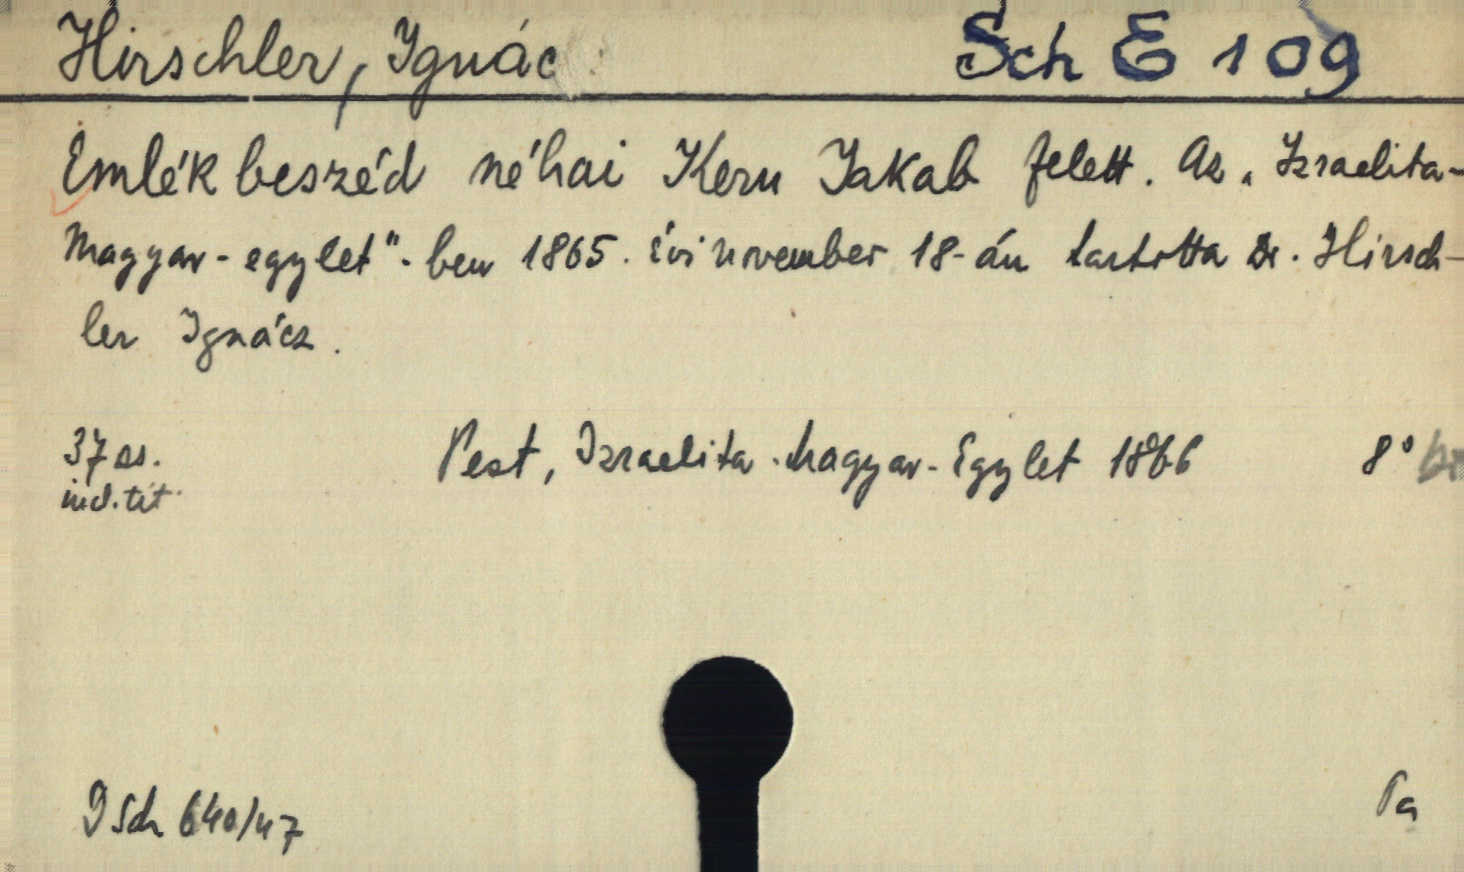 Hirschler, Ignác Sch E 109
Emlékbeszéd néhai Kern Jakab felett. Az „Izraelita-
Magyar-egylet"-ben 1865. évi november 18-án tartotta Dr. Hirsch-
ler Ignácz.
37 ss. Pest, Izraelita-Magyar-Egylet 1866 8°
incl. tit.
D Sch 640/47 Pa